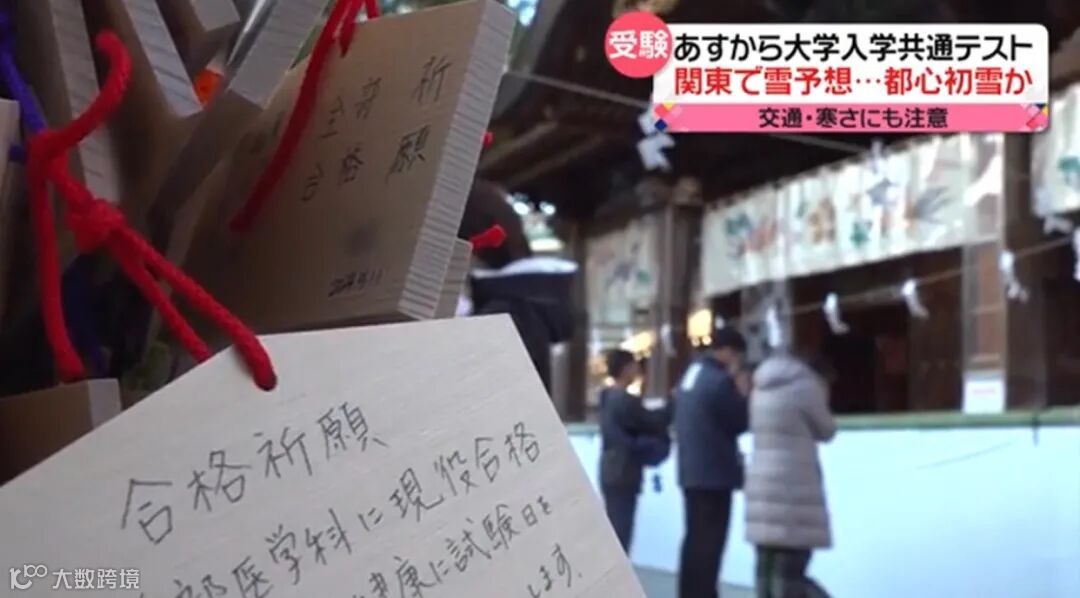 受験
あすから大学入学共通テスト
関東で雪予想…都心初雪か
交通・寒さにも注意
祈願
合格
合格祈願
医学科に現役合格
健康に試験日を
します。
大数跨境